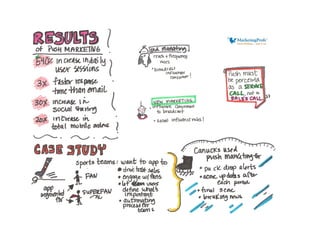 RESULTS
OF PUSH MARKETING
540% increase in daily
user sessions
3x faster response
time than email
30x increase in
social sharing
20x increase in
total mobile
old marketing
reach + frequency
mass
consumer
NEW MARKETING
to broadcast
MarketingProfs
PUSH must
be perceived
as a SERVICE
CALL, not a
SALES CALL
CASE STUDY
Sports teams: want to app to
drive ticket sales
engage w/ fans
let users
define what's
important
automating
process for
teams
app
segmented
for
FAN
SUPERFAN
Canucks used
push marketing for
puck drop alerts
score updates after
each period
final score
breaking news